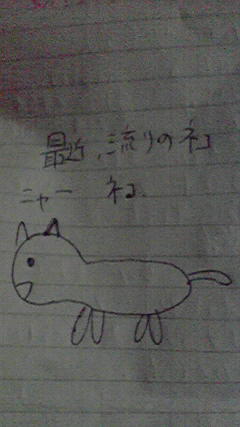 最近、流りのネコ
ニャー ネコ.